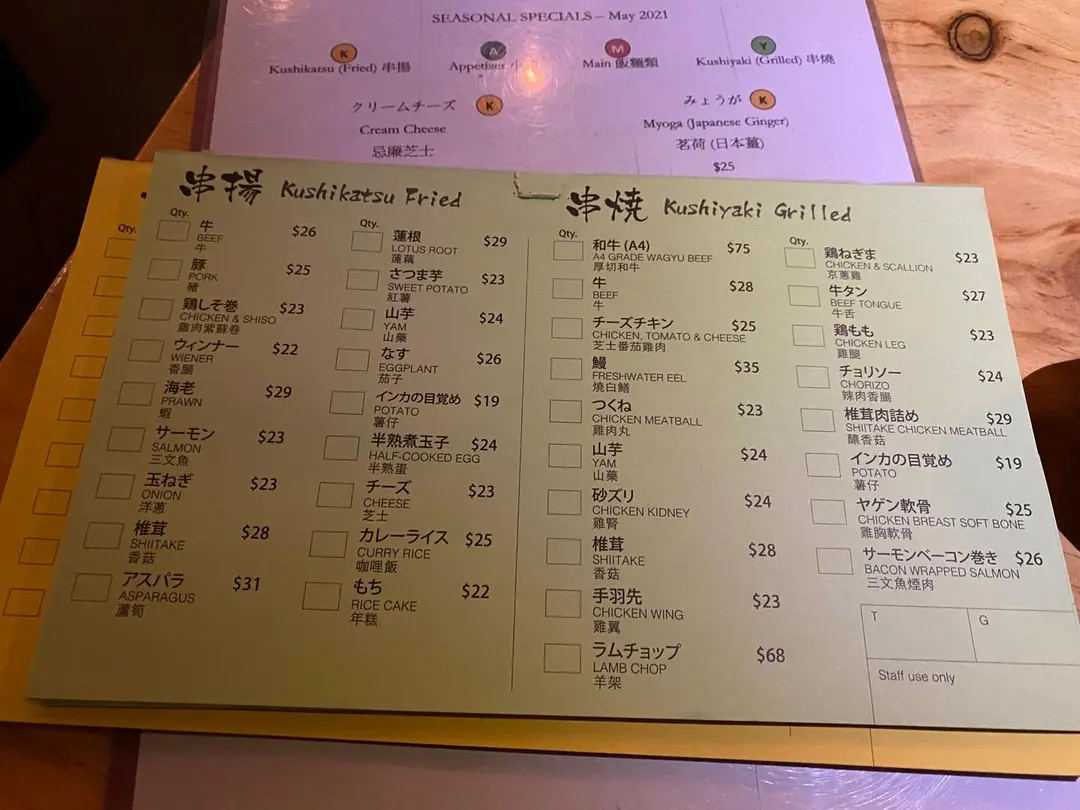 SEASONAL SPECIALS – May 2021
K A M Y
Kushikatsu (Fried) 串揚
Appetizer
Main 飯麵類
Kushiyaki (Grilled) 串燒
クリームチーズ K
Cream Cheese
忌廉芝士
みょうが K
Myoga (Japanese Ginger)
茗荷 (日本薑)
$25
串揚 Kushikatsu Fried
Qty.
牛 $26
BEEF
牛
豚 $25
PORK
豬
鶏しそ巻 $23
CHICKEN & SHISO
雞肉紫蘇卷
ウィンナー $22
WIENER
香腸
海老 $29
PRAWN
蝦
サーモン $23
SALMON
三文魚
玉ねぎ $23
ONION
洋蔥
椎茸 $28
SHIITAKE
香菇
アスパラ $31
ASPARAGUS
蘆筍
Qty.
蓮根 $29
LOTUS ROOT
蓮藕
さつま芋 $23
SWEET POTATO
紅薯
山芋 $24
YAM
山藥
なす $26
EGGPLANT
茄子
インカの目覚め $19
POTATO
薯仔
半熟煮玉子 $24
HALF-COOKED EGG
半熟蛋
チーズ $23
CHEESE
芝士
カレーライス $25
CURRY RICE
咖哩飯
もち $22
RICE CAKE
年糕
串焼 Kushiyaki Grilled
Qty.
和牛 (A4) $75
A4 GRADE WAGYU BEEF
厚切和牛
牛 $28
BEEF
牛
チーズチキン $25
CHICKEN, TOMATO & CHEESE
芝士番茄雞肉
鰻 $35
FRESHWATER EEL
燒白鱔
つくね $23
CHICKEN MEATBALL
雞肉丸
山芋 $24
YAM
山藥
砂ズリ $24
CHICKEN KIDNEY
雞腎
椎茸 $28
SHIITAKE
香菇
手羽先 $23
CHICKEN WING
雞翼
ラムチョップ $68
LAMB CHOP
羊架
Qty.
鶏ねぎま $23
CHICKEN & SCALLION
京蔥雞
牛タン $27
BEEF TONGUE
牛舌
鶏もも $23
CHICKEN LEG
雞腿
チョリソー $24
CHORIZO
辣肉香腸
椎茸肉詰め $29
SHIITAKE CHICKEN MEATBALL
釀香菇
インカの目覚め $19
POTATO
薯仔
ヤゲン軟骨 $25
CHICKEN BREAST SOFT BONE
雞胸軟骨
サーモンベーコン巻き $26
BACON WRAPPED SALMON
三文魚煙肉
T G
Staff use only
Qty.